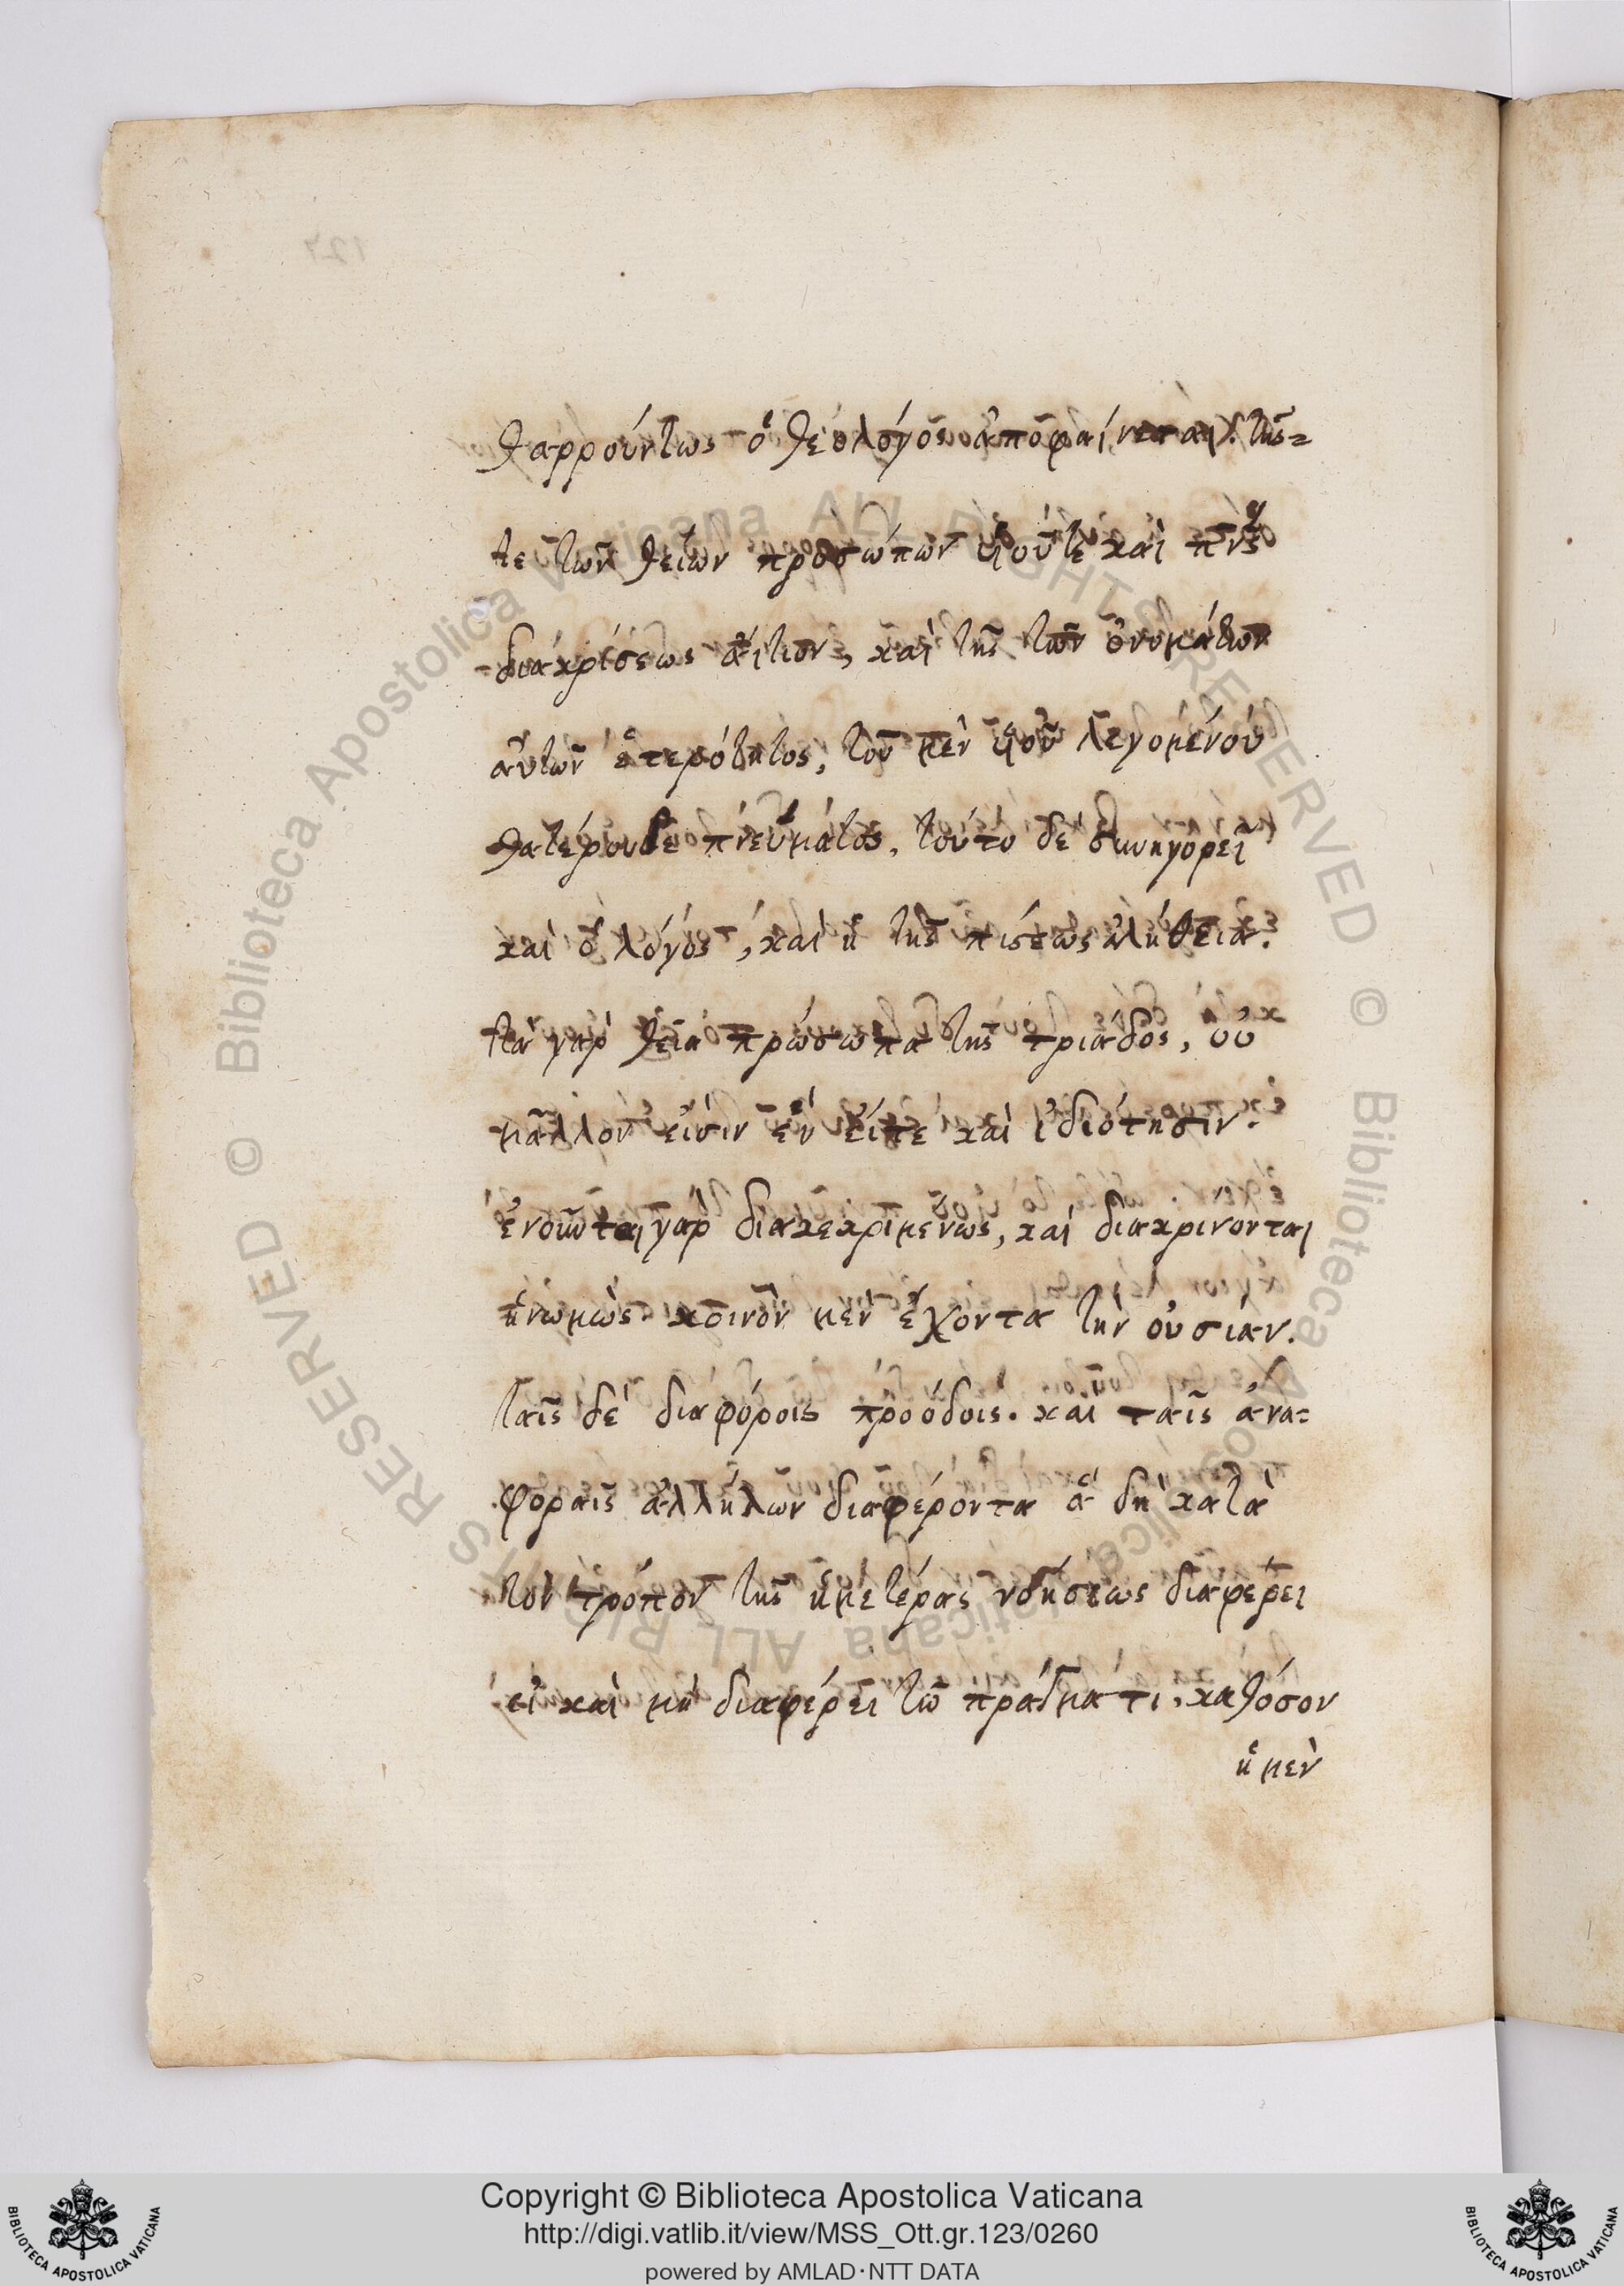 θαρρούντως ὁ θεολόγος ἀποφαίνεται. τῆς=
τε τῶν θείων προσώπων υἱοῦτε καὶ πνς
διακρίσεως αἴτιον, καὶ τῆς τῶν ὀνομάτων
αὐτῶν ἑτερότητος, τοῦ μὲν υἱοῦ λεγομένου
θατέρουδε πνεύματος. τούτο δὲ συνηγορεῖ
καὶ ὁ λόγος, καὶ ἡ τῆς πίστεως ἀλήθεια.
τὰ γὰρ θεῖα πρώσωπα τῆς τριάδος, οὐ
μᾶλλον εἰσὶν ἓν εἴπε καὶ ἰδιότησιν.
ἑνοῦνται γὰρ διακεκριμενως, καὶ διακρινονται
ἡνωμὼς. κοινὸν μὲν ἔχοντα τὴν οὐσιαν.
ταῖς δὲ διαφόροις προόδοις. καὶ ταῖς ἀνα=
φοραῖς ἀλλήλων διαφέροντα ἃ δὴ κατὰ
τὸν τρόπον τῆς ἡμετέρας νοήσεως διαφέρει
εἰ καὶ μὴ διαφέρει τῶ πράγματι, καθόσον
ἡ μὲν
Copyright © Biblioteca Apostolica Vaticana
http://digi.vatlib.it/view/MSS_Ott.gr.123/0260
powered by AMLAD·NTT DATA
BIBLIOTECA APOSTOLICA VATICANA
BIBLIOTECA APOSTOLICA VATICANA